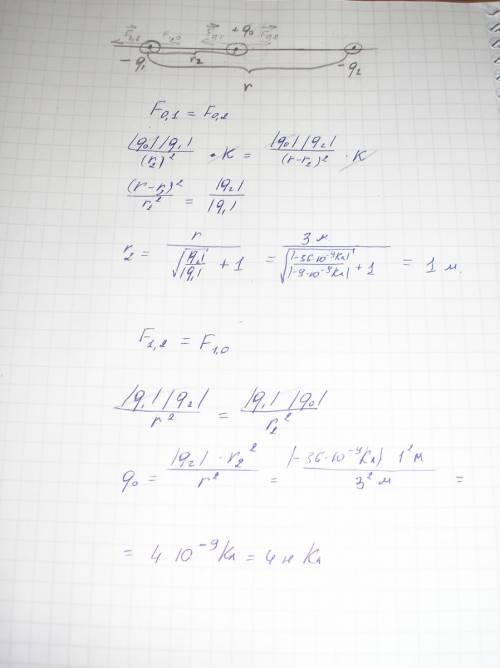 F₁,₂ F₁,₀ F₀,₁ +q₀ F₀,₂
-q₁ r₂ -q₂
r
F₀,₁ = F₀,₂
|q₀| |q₁| / (r₂)² · K = |q₀| |q₂| / (r-r₂)² · K
(r-r₂)² / r₂² = |q₂| / |q₁|
r₂ = r / √(|q₂| / |q₁|) + 1 = 3 м / √(|-36·10⁻⁹Кл| / |-9·10⁻⁹Кл|) + 1 = 1 м.
F₁,₂ = F₁,₀
|q₁| |q₂| / r² = |q₁| |q₀| / r₂²
q₀ = |q₂| · r₂² / r² = |-36·10⁻⁹Кл| 1² м / 3² м =
= 4 · 10⁻⁹ Кл = 4 н Кл